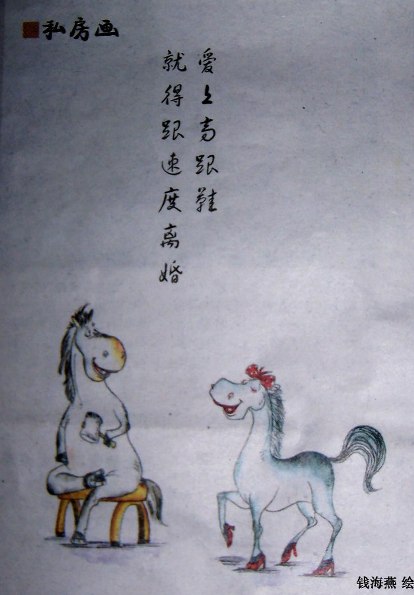 私房画
爱上高跟鞋
就得跟速度离婚
钱海燕 绘